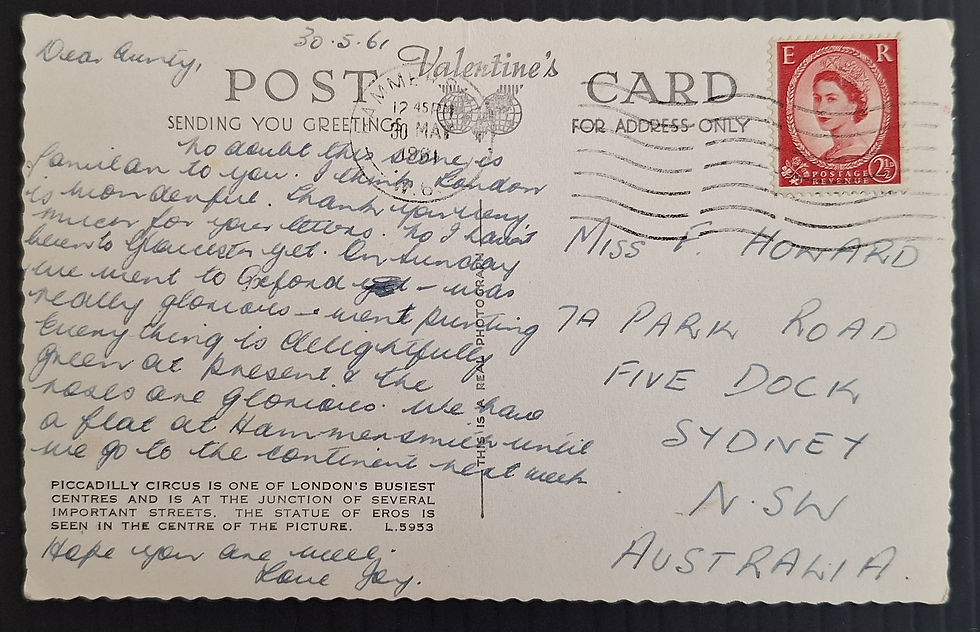 30·5·61
Dear Aunty,
POST Valentine's CARD
SENDING YOU GREETINGS
FOR ADDRESS ONLY
12 45 PM
30 MAY
1961
E R
POSTAGE
REVENUE
2½
No doubt this scene is
familiar to you. I think London
is wonderful. Thank you very
much for your letters. No I haven't
been to Gloucester yet. On Sunday
we went to Oxford – was
really glorious – went punting
Everything is delightfully
green at present & the
roses are glorious. We have
a flat at Hammersmith until
we go to the continent next week
PICCADILLY CIRCUS IS ONE OF LONDON'S BUSIEST
CENTRES AND IS AT THE JUNCTION OF SEVERAL
IMPORTANT STREETS. THE STATUE OF EROS IS
SEEN IN THE CENTRE OF THE PICTURE. L.5953
Hope you are well,
Love Joy.
THIS IS A REAL PHOTOGRAPH
MISS F. HOWARD
7A PARK ROAD
FIVE DOCK
SYDNEY
N·SW
AUSTRALIA.